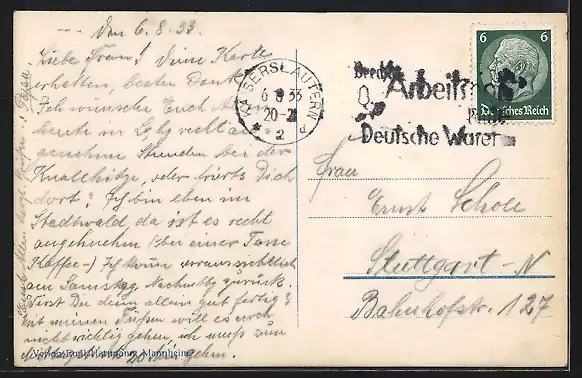 Den 6.8.33.
Liebe Frau! Deine Karte
erhalten, besten Dank.
Ich wünsche Euch
heute in recht an
genehme Stunden bei der
Knallhitze, oder Dich
dort? Ich bin eben im
Stadtwald, da ist es recht
angenehmen (bei einer Tasse
Kaffee-) Ich komme voraussichtlich
am Samstag Nachmittg zurück.
Wirst Du denn allein gut fertig?
Mit meinen Füßen will es noch
nicht richtig gehen, ich muß zum
gehen.
Mannheim
KAISERSLAUTERN
6 8 33
20-2
2
d
Arbeit
Deutsche Ware
6 6
Deutsches Reich
Frau
Ernst Schole
Stuttgart-N
Bahnhofstr. 127